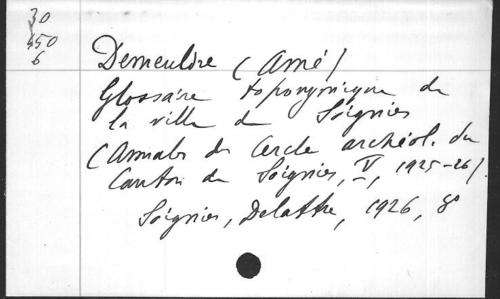 30
450
6
Demeuldre (Amé)
Glossaire toponymique de
la ville de Soignies
(Annales du Cercle archéol. du
Canton de Soignies, V, 1925-26).
Soignies, Delattre, 1926, 8°